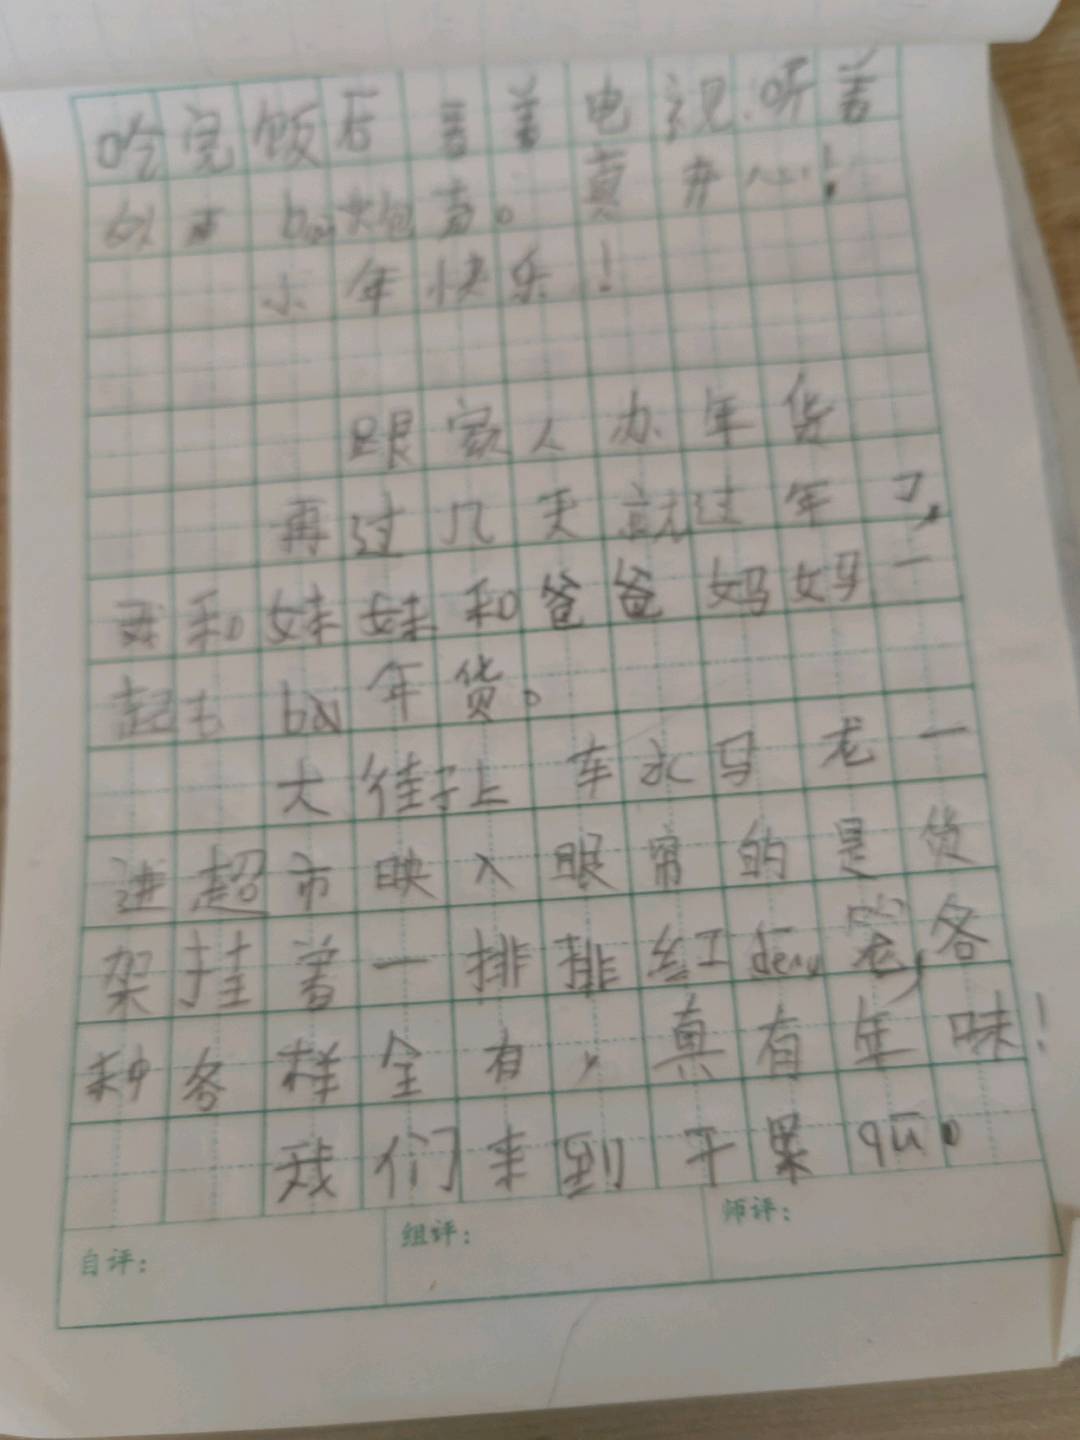 吃完饭后看着电视听着
炮声。真开心!
小年快乐!
跟家人办年货
再过几天就过年了,
我和妹妹和爸爸妈妈一
起去bàn年货。
大街子上车水马龙一
进超市映入眼帘的是货
架挂着一排排红dēng笼,各
种各样全有,真有年味!
我们来到干果qū。
自评: 组评: 师评: